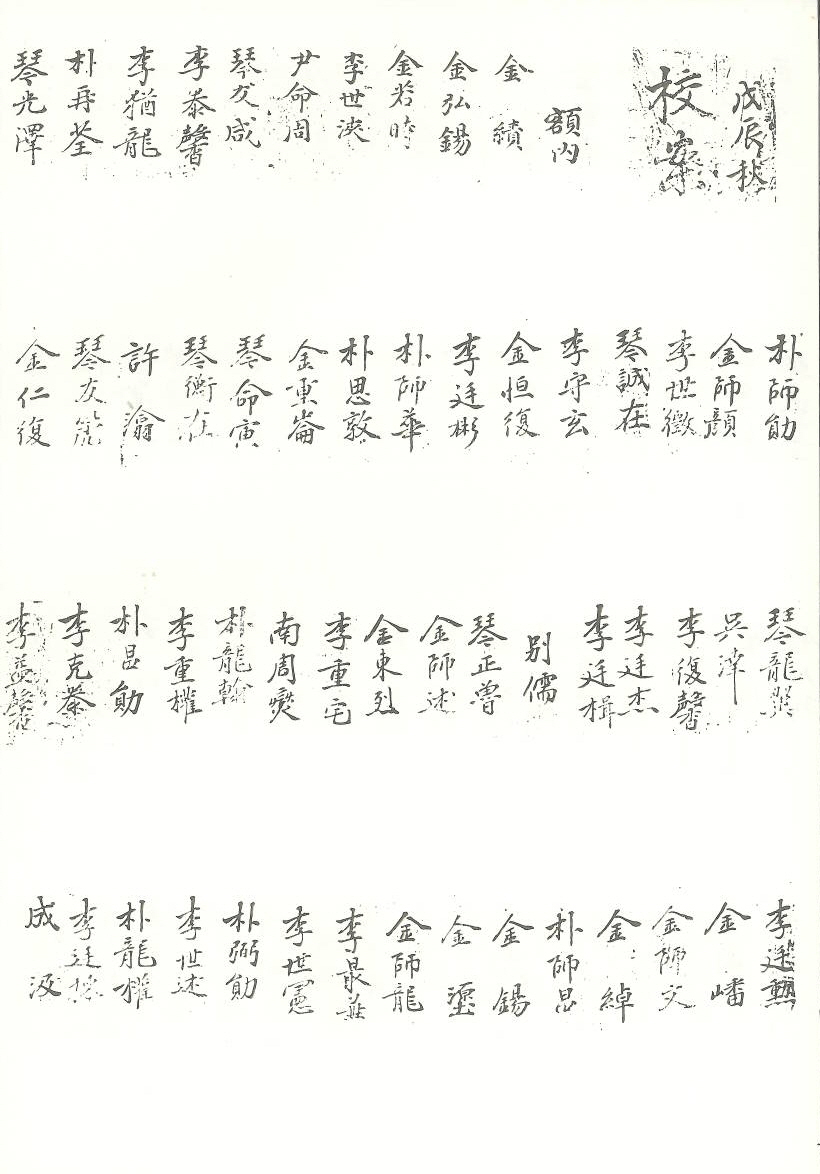 戊辰秋
校案
額內
金 績
金弘錫
金若時
李世浹
尹命周
琴友咸
李泰馨
李猶龍
朴再荃
琴光澤
朴師勛
金師顔
李世徵
琴誠在
李守玄
金恒復
李廷彬
朴師華
朴思敦
金重崙
琴命寅
琴衡在
許 瀹
琴友
金仁復
琴龍
吳澤
李復馨
李廷杰
李廷楫
別儒
琴正魯
金師述
金東烈
李重宅
南周爕
朴龍翰
李重權
朴昌勛
李克泰
李益馨
李廷勲
金 嶓
金師文
金 綽
朴師昌
金 錫
金
金師龍
李最
李世憲
朴弼勛
李世述
朴龍權
李廷
成 汲